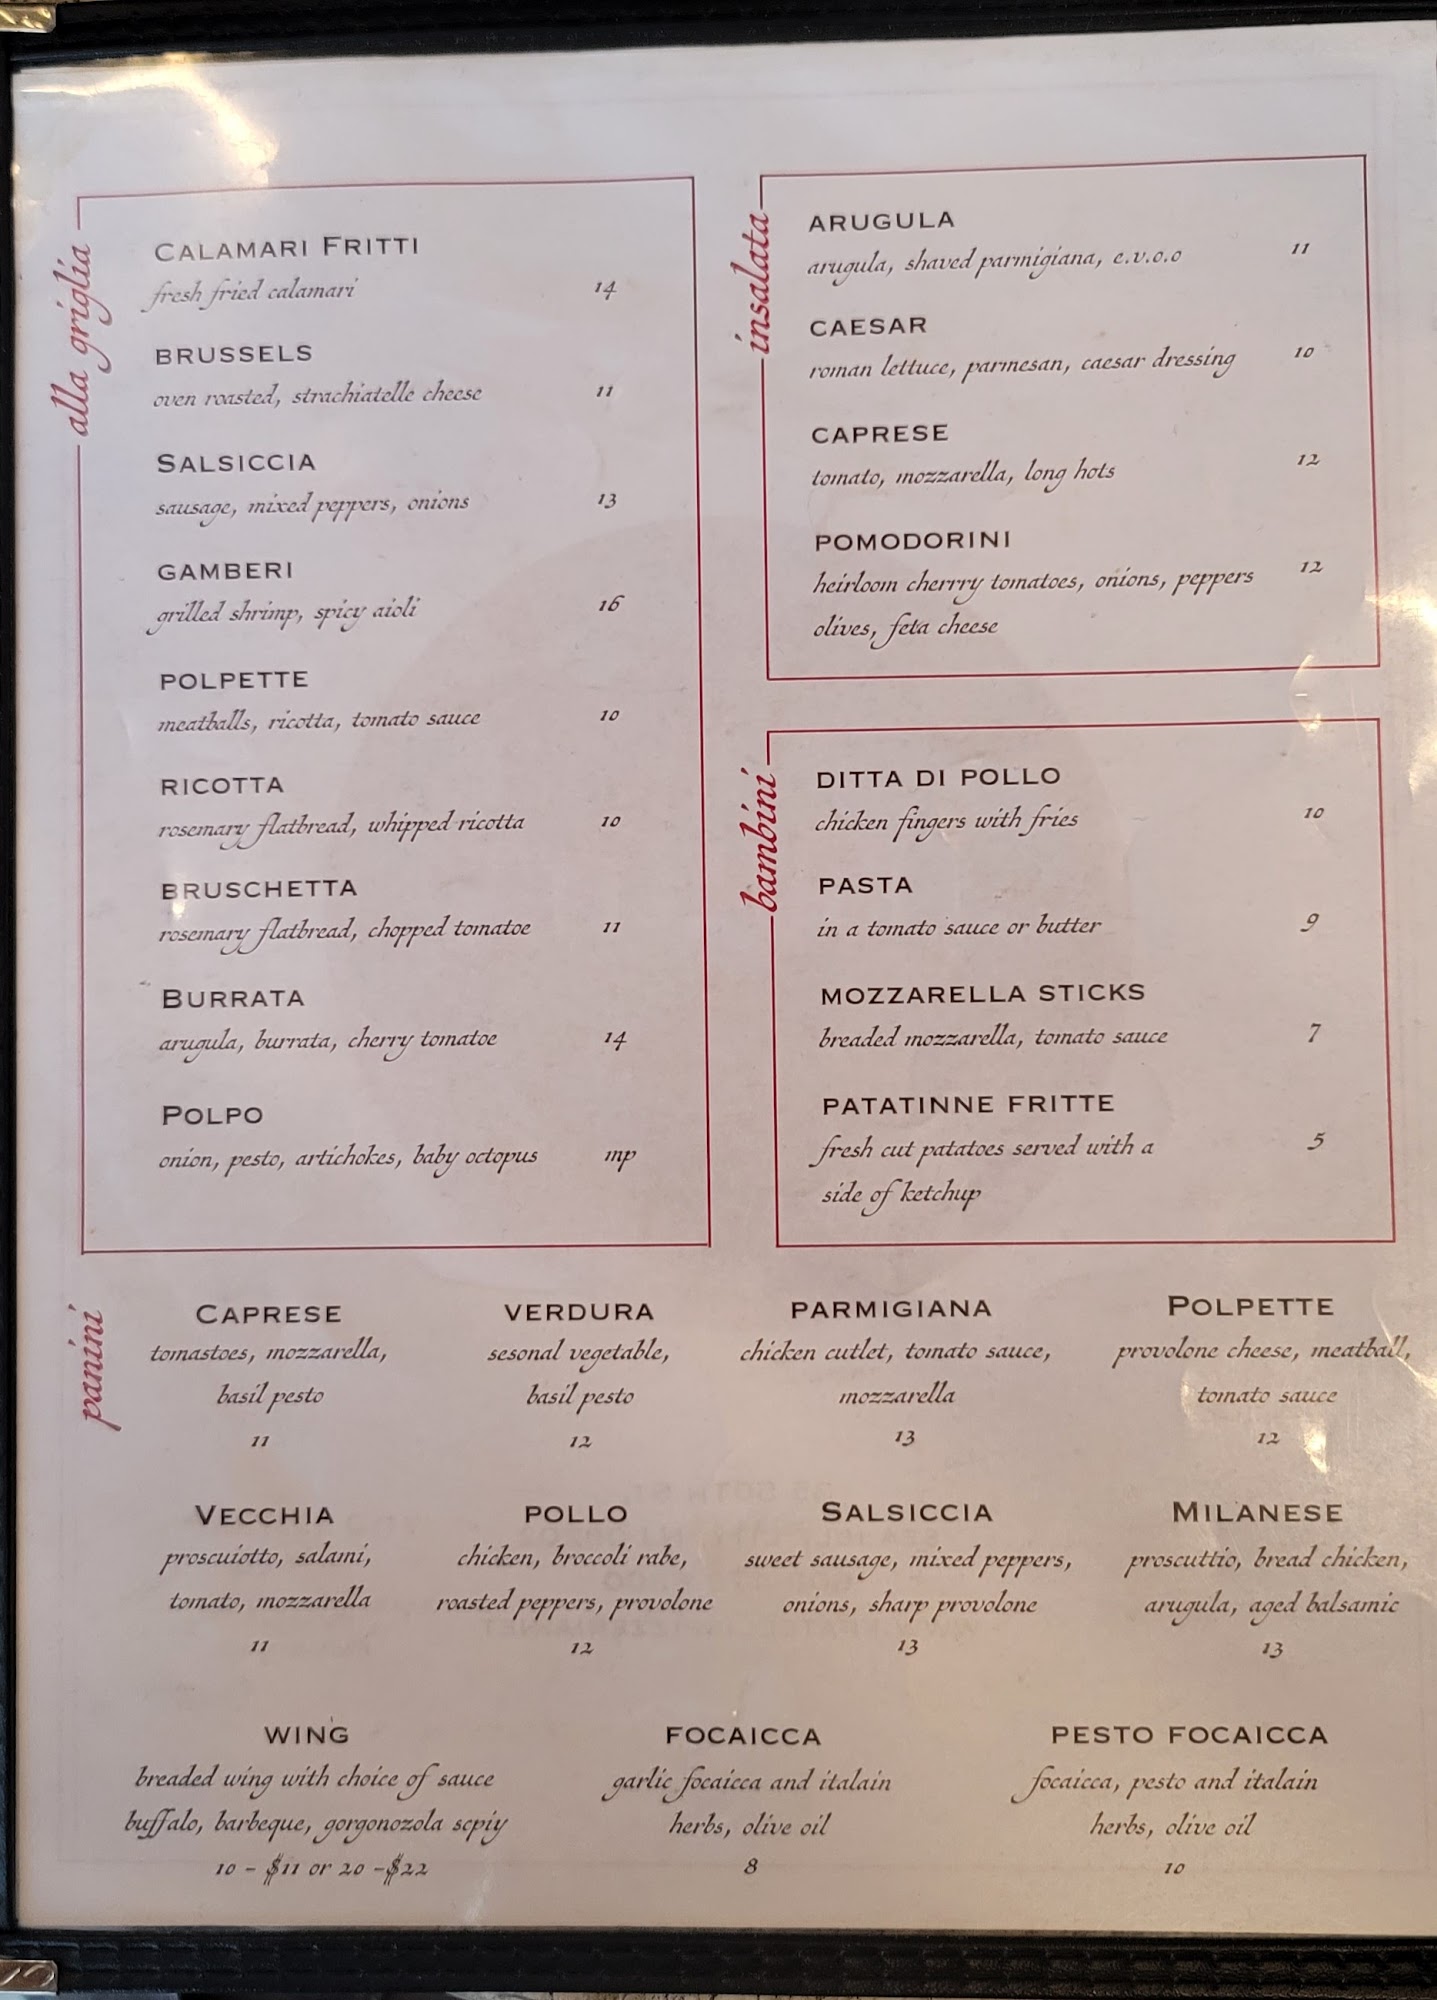 alla griglia
CALAMARI FRITTI
fresh fried calamari 14
BRUSSELS
oven roasted, strachiatelle cheese 11
SALSICCIA
sausage, mixed peppers, onions 13
GAMBERI
grilled shrimp, spicy aioli 16
POLPETTE
meatballs, ricotta, tomato sauce 10
RICOTTA
rosemary flatbread, whipped ricotta 10
BRUSCHETTA
rosemary flatbread, chopped tomatoe 11
BURRATA
arugula, burrata, cherry tomatoe 14
POLPO
onion, pesto, artichokes, baby octopus mp
insalata
ARUGULA
arugula, shaved parmigiana, e.v.o.o 11
CAESAR
roman lettuce, parmesan, caesar dressing 10
CAPRESE
tomato, mozzarella, long hots 12
POMODORINI
heirloom cherrry tomatoes, onions, peppers 12
olives, feta cheese
bambini
DITTA DI POLLO
chicken fingers with fries 10
PASTA
in a tomato sauce or butter 9
MOZZARELLA STICKS
breaded mozzarella, tomato sauce 7
PATATINNE FRITTE
fresh cut patatoes served with a 5
side of ketchup
panini
CAPRESE
tomastoes, mozzarella,
basil pesto
11
VERDURA
sesonal vegetable,
basil pesto
12
PARMIGIANA
chicken cutlet, tomato sauce,
mozzarella
13
POLPETTE
provolone cheese, meatball,
tomato sauce
12
VECCHIA
proscuiotto, salami,
tomato, mozzarella
11
POLLO
chicken, broccoli rabe,
roasted peppers, provolone
12
SALSICCIA
sweet sausage, mixed peppers,
onions, sharp provolone
13
MILANESE
proscuttio, bread chicken,
arugula, aged balsamic
13
WING
breaded wing with choice of sauce
buffalo, barbeque, gorgonozola scpiy
10 - $11 or 20 -$22
FOCAICCA
garlic focaicca and italain
herbs, olive oil
8
PESTO FOCAICCA
focaicca, pesto and italain
herbs, olive oil
10